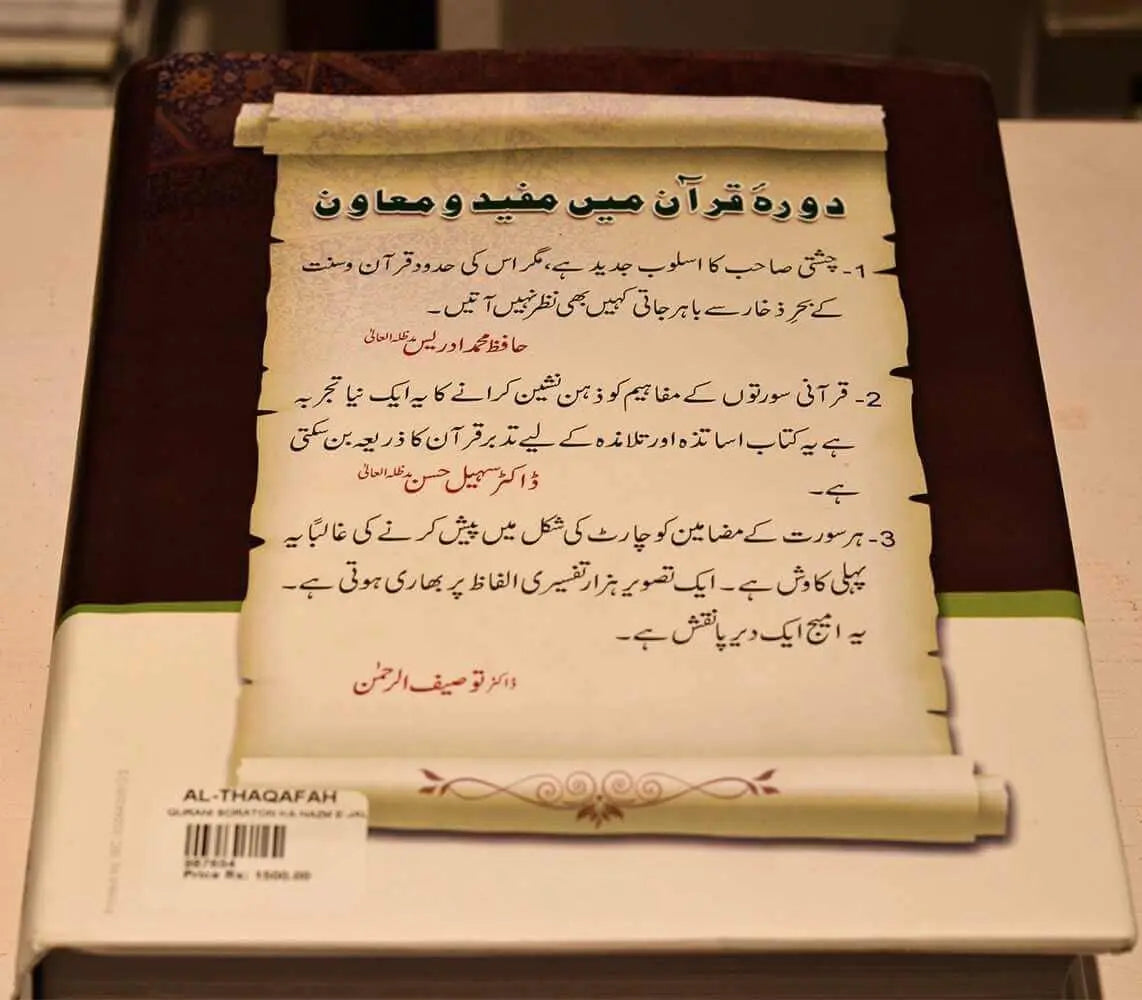 دورۂ قرآن میں مفید و معاون
1- چشتی صاحب کا اسلوب جدید ہے، مگر اس کی حدود قرآن وسنت
کے بحرِ ذخار سے باہر جاتی کہیں بھی نظر نہیں آتیں۔
حافظ محمد ادریس مدظلہ العالیٰ
2- قرآنی سورتوں کے مفاہیم کو ذہن نشین کرانے کا یہ ایک نیا تجربہ
ہے یہ کتاب اساتذہ اور تلامذہ کے لیے تدبر قرآن کا ذریعہ بن سکتی
ہے۔
ڈاکٹر سہیل حسن مدظلہ العالیٰ
3- ہر سورت کے مضامین کو چارٹ کی شکل میں پیش کرنے کی غالبًا یہ
پہلی کاوش ہے۔ ایک تصویر ہزار تفسیری الفاظ پر بھاری ہوتی ہے۔
یہ امیج ایک دیرپا نقش ہے۔
ڈاکٹر توصیف الرحمٰن
AL-THAQAFAH
QURANI SORATON KA NAZM E
Price Rs: 1500.00